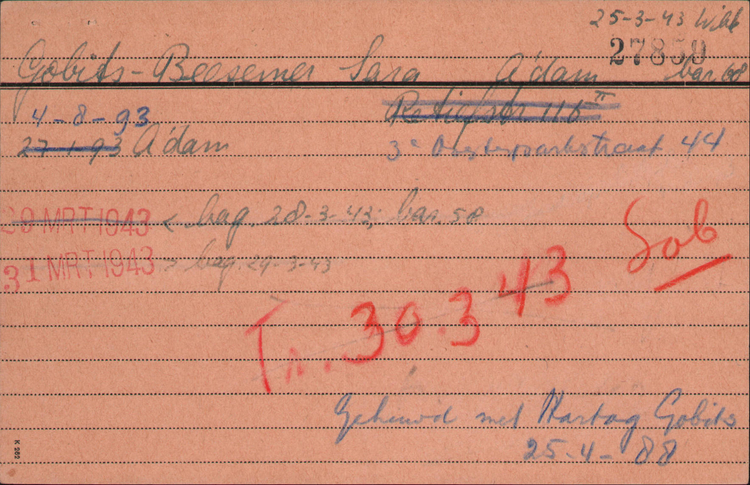 25-3-43 Wibb
27859
Gobits-Beesemer Sara A'dam bar. 68
4-8-93 Retiefstr 116 II
27-1-93 A'dam 3e Oosterparkstraat 44
29 MRT 1943 < bag. 28-3-43; bar. 58
31 MRT 1943 > bag. 29-3-43
Tr. 30.3 43
Gehuwd met Hartog Gobits
25-4-88
K 262